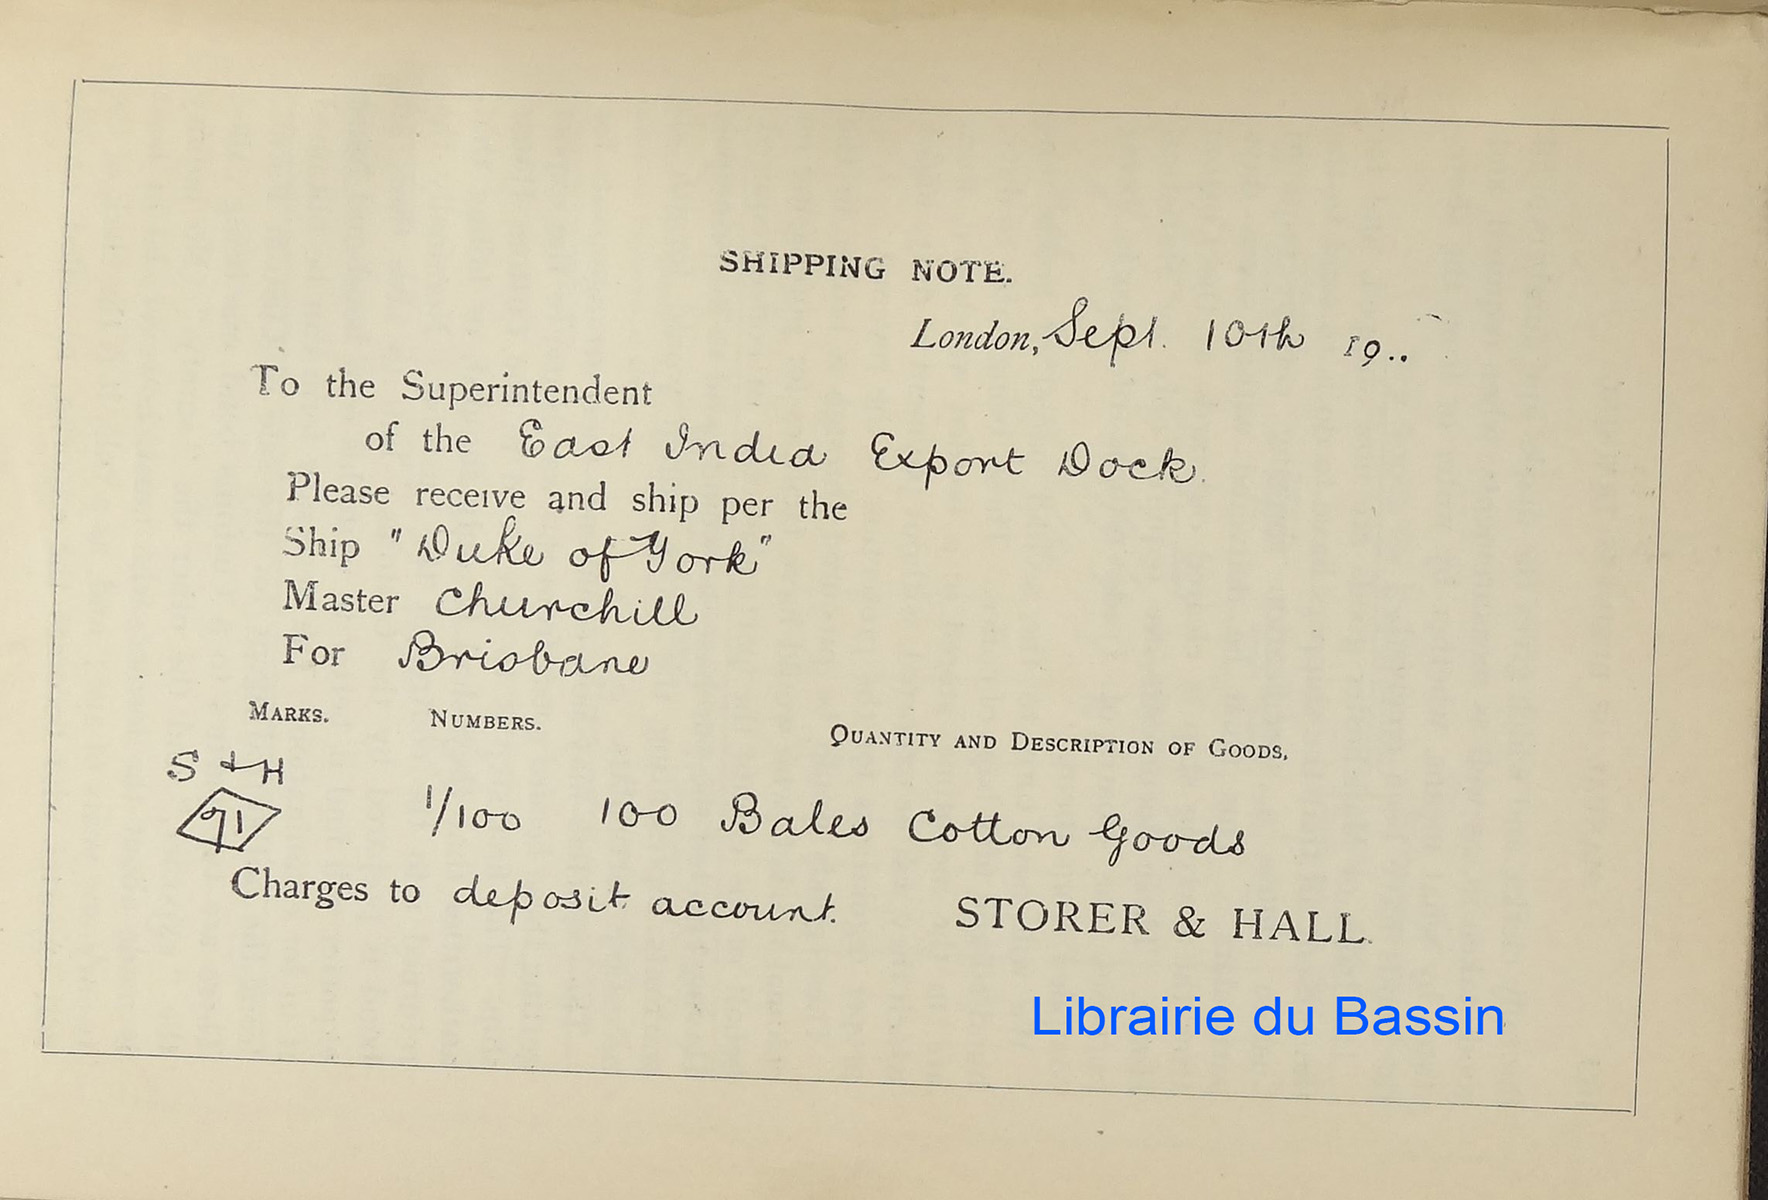 SHIPPING NOTE.
London, Sept. 10th 19..
To the Superintendent
of the East India Export Dock.
Please receive and ship per the
Ship "Duke of York"
Master Churchill
For Brisbane
MARKS. NUMBERS. QUANTITY AND DESCRIPTION OF GOODS.
S & H
91
1/100 100 Bales Cotton Goods
Charges to deposit account. STORER & HALL.
Librairie du Bassin